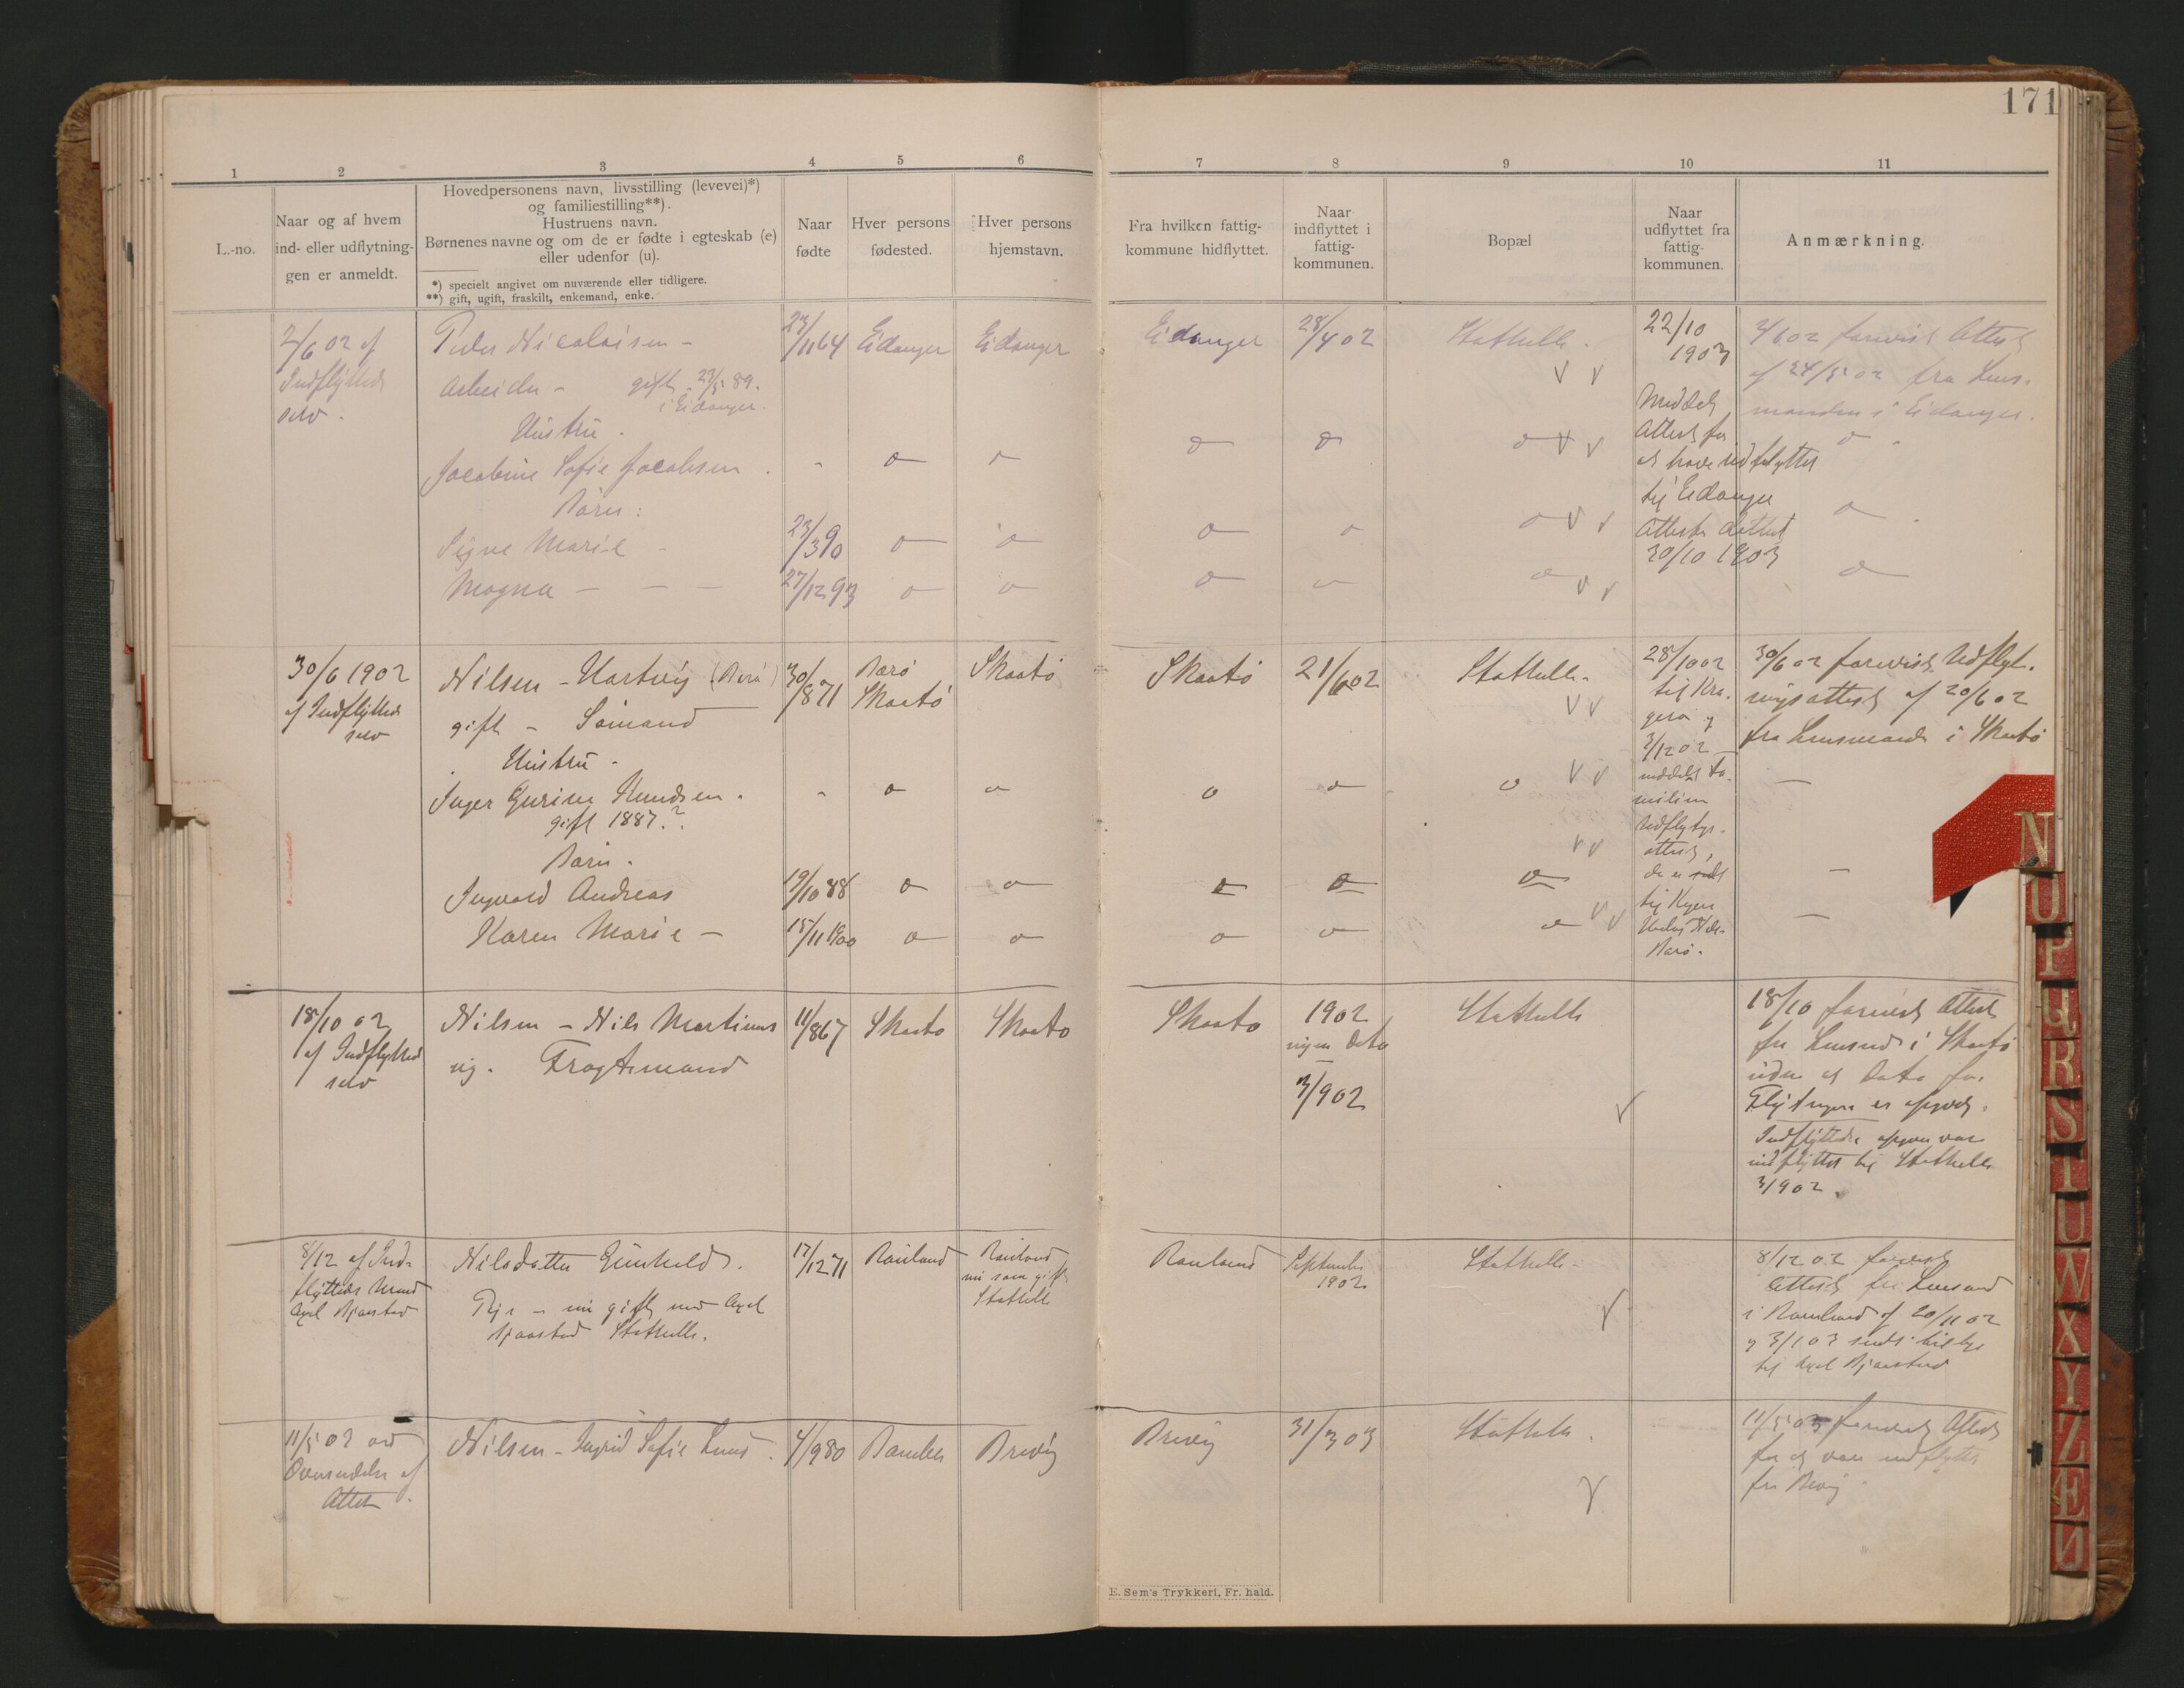 171
1 2 3 4 5 6 7 8 9 10 11
L.-no.
Naar og af hvem
ind- eller udflytnin-
gen er anmeldt.
Hovedpersonens navn, livsstilling (levevei)*)
og familiestilling**).
Hustruens navn.
Børnenes navne og om de er fødte i egteskab (e)
eller udenfor (u).
*) specielt angivet om nuværende eller tidligere.
**) gift, ugift, fraskilt, enkemand, enke.
Naar
fødte
Hver persons
fødested.
Hver persons
hjemstavn.
Fra hvilken fattig-
kommune hidflyttet.
Naar
indflyttet i
fattig-
kommunen.
Bopæl
Naar
udflyttet fra
fattig-
kommunen.
Anmærkning.
2/6 02 af
Indflyttede
selv.
Peder Nicolaisen -
Arbeider - gift 23/5 89.
i Eidanger.
Hustru.
Jacobine Sofie Jacobsen.
Børn:
Signe Marie -
Magna - - -
23/11 64
23/3 90
27/12 93
Eidanger
Eidanger
Eidanger
28/4 02
Stathelle.
22/10
1903
Meddelt
Attest for
at have udflyttet
til Eidanger
Attesten dateret
30/10 1903
2/6 02 forevist Attest
af 24/5 02 fra Lens-
manden i Eidanger.
30/6 1902
af Indflyttede
selv
Nilsen - Hartvig (Barø)
gift - Sømand
Hustru -
Inger Gurine Knudsen.
gift 1887.?
Børn.
Ingvald Andreas
Karen Marie -
30/8 71
19/10 88
15/11 1900
Barø
Skaatø
Skaatø
Skaatø
21/6 02
Stathelle.
28/10 02
til Kra-
gerø og
3/12 02
meddelt Fa-
milien
Udflytgs.
attest,
de er
til
Barø.
30/6 02 forevist Udflyt-
ningsattest af 20/6 02
fra Lensmand i Skaatø
18/10 02
af Indflytted
selv
Nilsen - Nils Martinus
ug. Fragtemand
11/8 67
Skaatø
Skaatø
Skaatø
1902
ingen Dato
3/9 02
Stathelle
18/10 forevist Attest
fra Lensmd i Skaatø
uden at Dato for
Flytningen er opgivet.
Indflyttede opgav var
indflyttet til Stathelle
3/9 02.
8/12 af Ind-
flyttedes Mand
Axel Bjaastad
Nilsdatter Gunhild.
Pige - nu gift med Axel
Bjaastad Stathelle.
17/12 71
Rauland
Rauland
nu som gift
Stathelle
Rauland
September
1902
Stathelle -
8/12 02 forevist
Attest fra Lensmd
i Rauland af 20/11 02
og 3/1 03 sendt
til Axel Bjaastad
11/5 03 ved
Oversendelse af
Attest.
Nilsen - Ingrid Sofie Lund.
4/9 80
Bamble
Brevig
Brevig
31/3 03
Stathelle.
11/5 03 forevist Attest
for at være indflyttet
fra Brevig
E. Sem's Trykkeri, Fr. hald.
N
O
P
Q
R
S
T
U
W
X
Y
Z
Æ
Ø